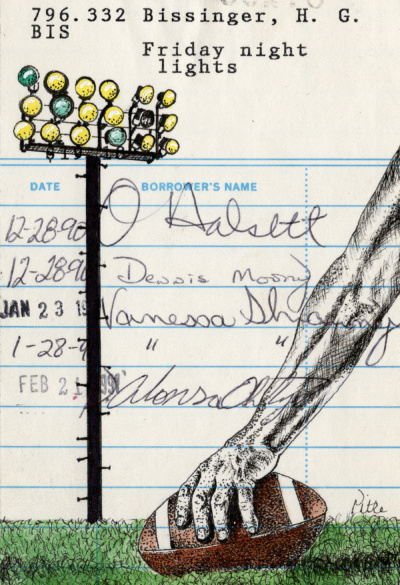 796.332 Bissinger, H. G.
BIS
Friday night
lights
DATE BORROWER'S NAME
12-28-90 O Halsett
12-28-90 Dennis Moony
JAN 23 19 Vanessa
1-28-9 " "
FEB 21 1991 Alonso
Pitre